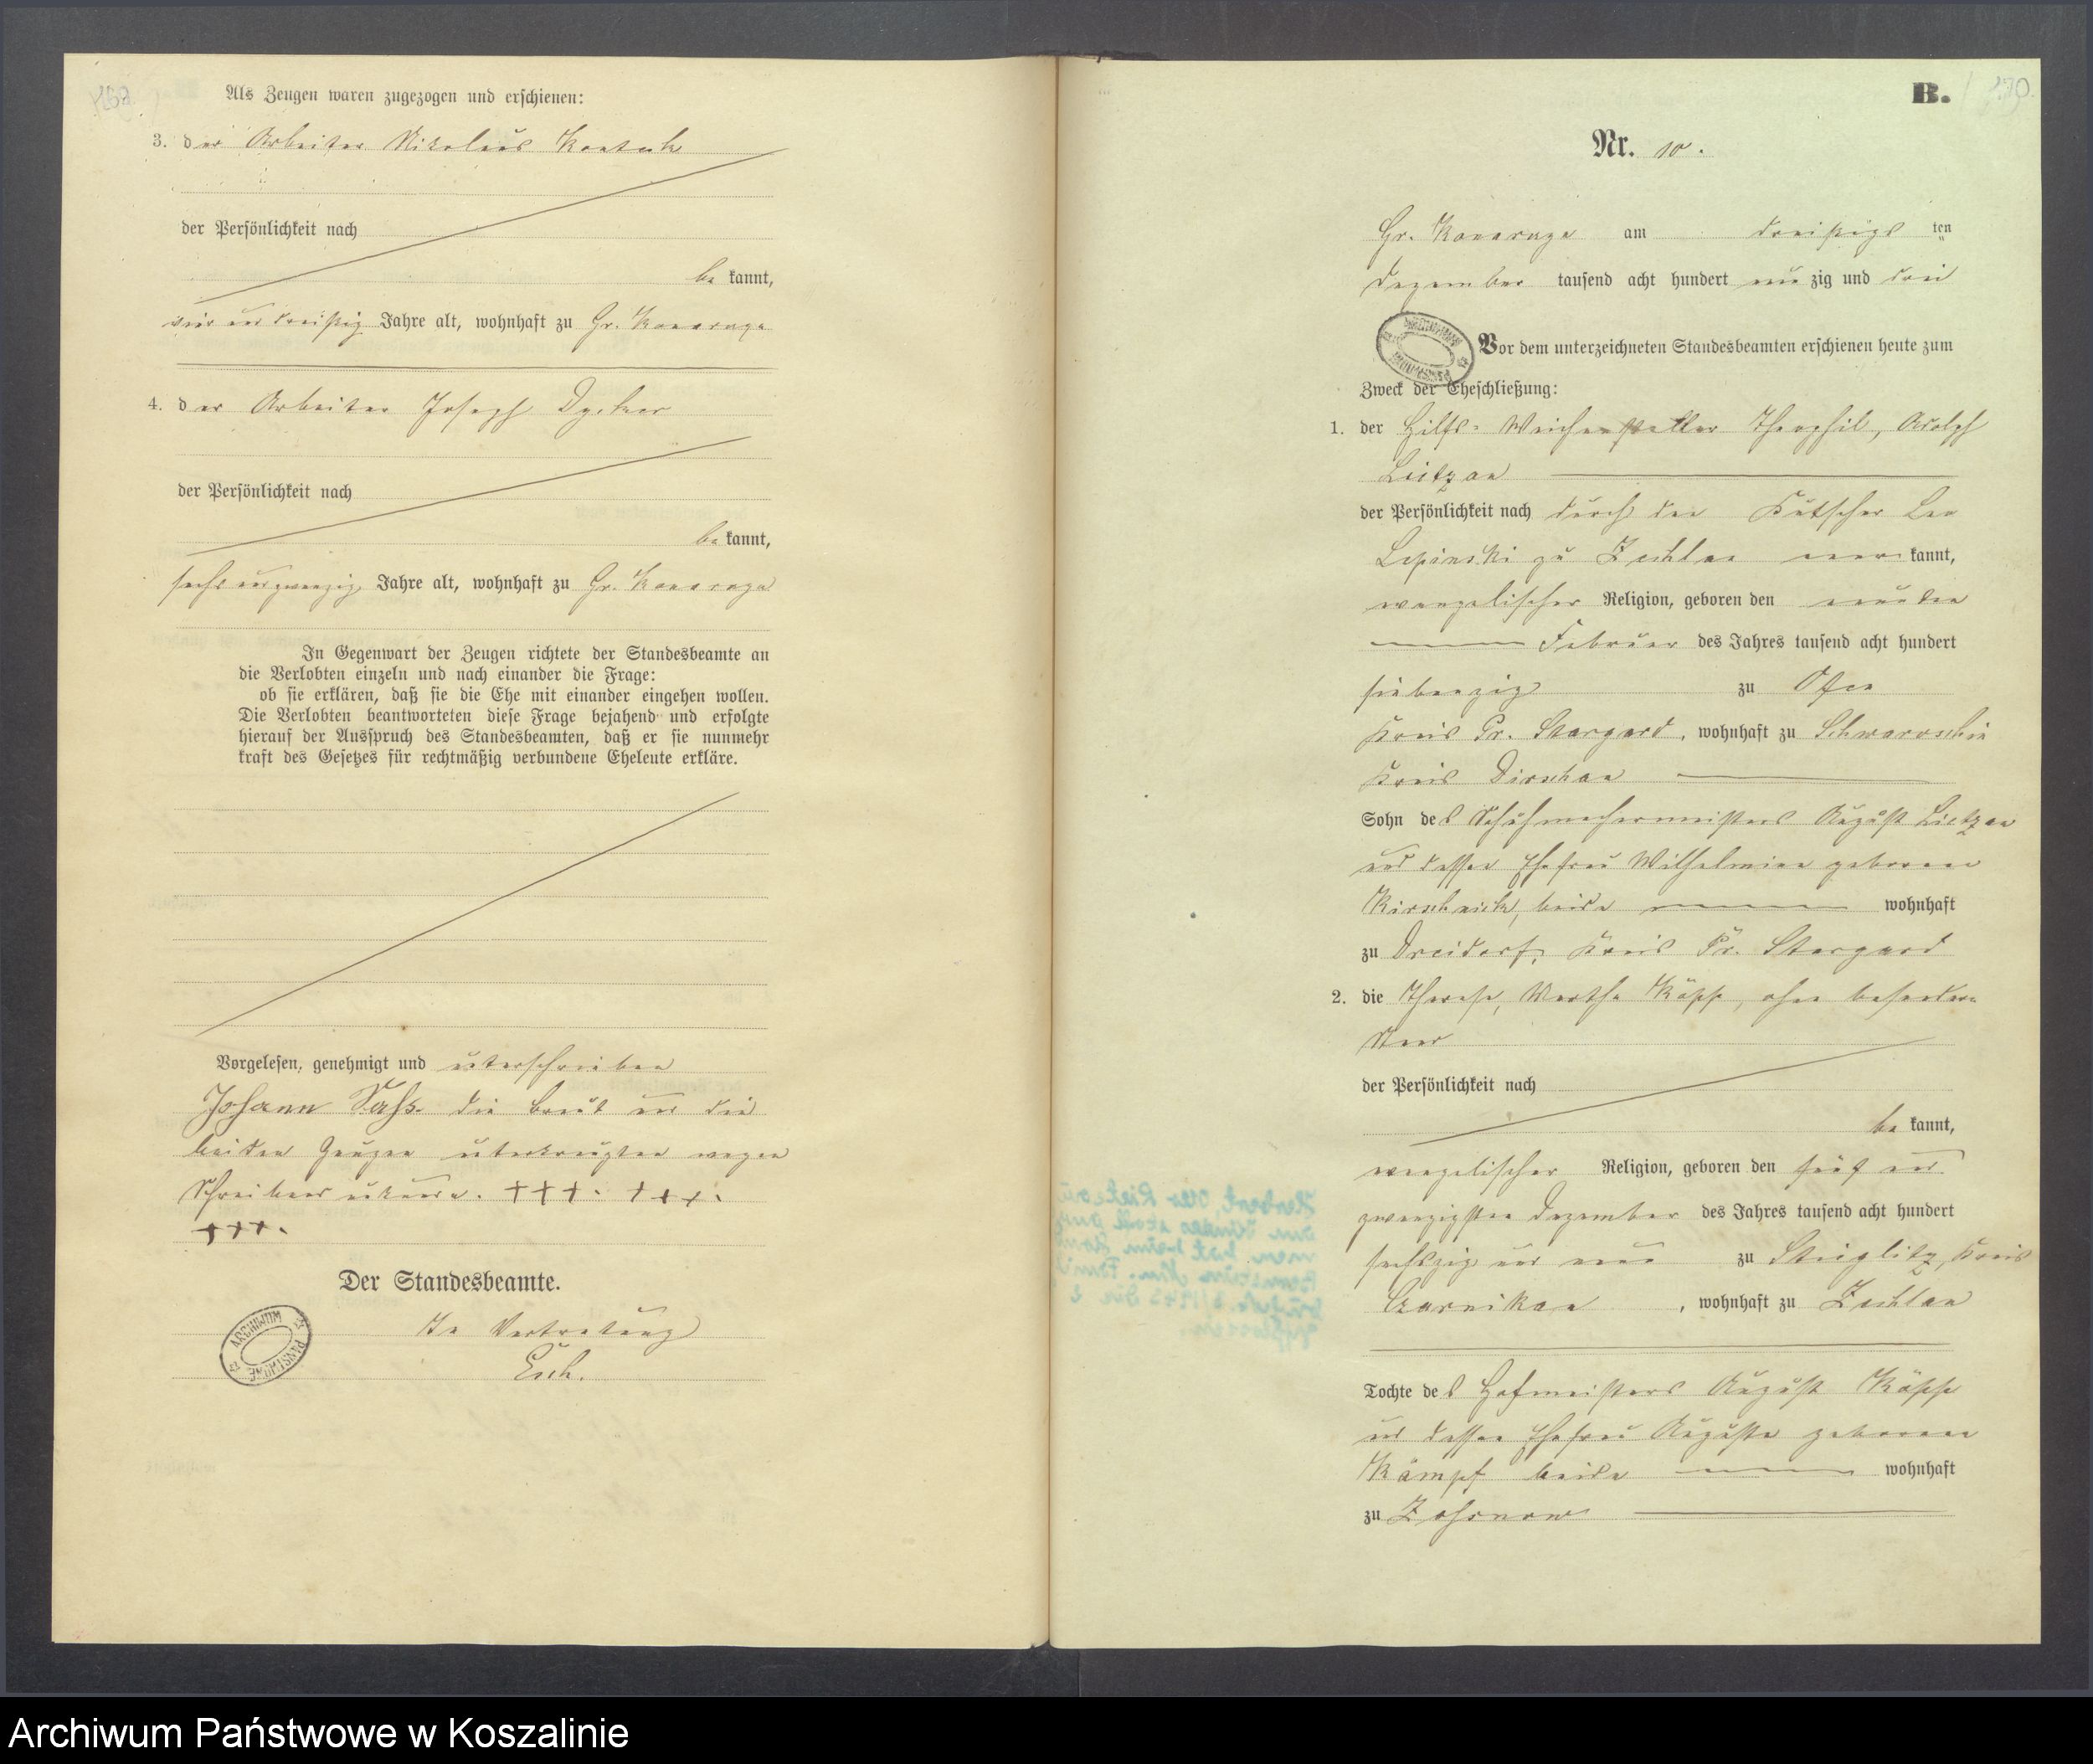 Als Zeugen waren zugezogen und erschienen:
3. der Arbeiter Nikolaus
der Persönlichkeit nach
bekannt,
vier und dreißig Jahre alt, wohnhaft zu Gr. Konarczyn
4. der Arbeiter Joseph
der Persönlichkeit nach
bekannt,
sechs und zwanzig Jahre alt, wohnhaft zu Gr. Konarczyn
In Gegenwart der Zeugen richtete der Standesbeamte an
die Verlobten einzeln und nach einander die Frage:
ob sie erklären, daß sie die Ehe mit einander eingehen wollen.
Die Verlobten beantworteten diese Frage bejahend und erfolgte
hierauf der Ausspruch des Standesbeamten, daß er sie nunmehr
kraft des Gesetzes für rechtmäßig verbundene Eheleute erkläre.
Vorgelesen, genehmigt und unterschrieben
Johann die Braut und die
beiden Zeugen unterkreuzten wegen
Schreibensunkunde. +++. +++.
+++.
Der Standesbeamte.
In Vertretung
ARCHIWUM PAŃSTWOWE
B.
Nr. 10.
Gr. Konarczyn am dreißigsten
Dezember tausend acht hundert neunzig und drei
ARCHIWUM PAŃSTWOWE
Vor dem unterzeichneten Standesbeamten erschienen heute zum
Zweck der Eheschließung:
1. der Hilfs-Weichensteller Theophil, Adolph
Lietzau
der Persönlichkeit nach durch den Kutscher Leo
zu Zechlau anerkannt,
evangelischer Religion, geboren den neunten
Februar des Jahres tausend acht hundert
siebenzig zu Ofen
Kreis Pr. Stargard, wohnhaft zu Swaroschin
Kreis Dirschau
Sohn des Schuhmachermeisters August Lietzau
und dessen Ehefrau Wilhelmine geborene
beide wohnhaft
zu Dreidorf, Kreis Pr. Stargard
2. die Therese, Martha Köpp, ohne besonderen
Stand
der Persönlichkeit nach
bekannt,
evangelischer Religion, geboren den fünf und
zwanzigsten Dezember des Jahres tausend acht hundert
sechszig und neun zu Stieglitz, Kreis
Czarnikau, wohnhaft zu Zechlau
Tochter des Hofmeisters August Köpp
und dessen Ehefrau Auguste geborene
Kämpf beide wohnhaft
zu
Archiwum Państwowe w Koszalinie